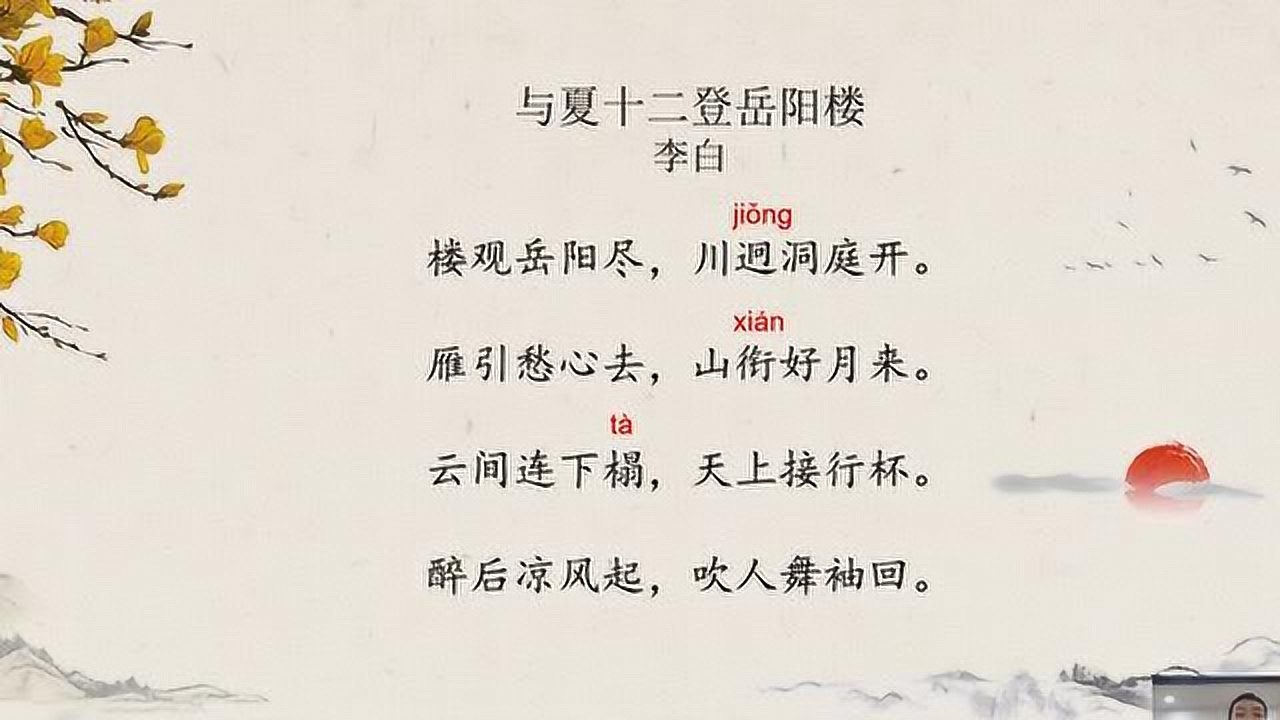 与夏十二登岳阳楼
李白
jiǒng
楼观岳阳尽，川迥洞庭开。
xián
雁引愁心去，山衔好月来。
tà
云间连下榻，天上接行杯。
醉后凉风起，吹人舞袖回。